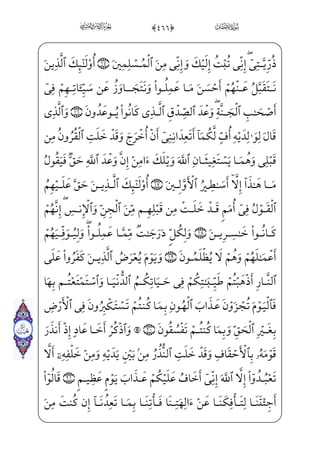 ﴿٤٦٦﴾
ذُرِّيَّتِىٓ ۖ إِنِّى تُبْتُ إِلَيْكَ وَإِنِّى مِنَ ٱلْمُسْلِمِينَ ۝١٥ أُو۟لَٰٓئِكَ ٱلَّذِينَ
نَتَقَبَّلُ عَنْهُمْ أَحْسَنَ مَا عَمِلُوا۟ وَنَتَجَاوَزُ عَن سَيِّـَٔاتِهِمْ فِىٓ
أَصْحَٰبِ ٱلْجَنَّةِ ۖ وَعْدَ ٱلصِّدْقِ ٱلَّذِى كَانُوا۟ يُوعَدُونَ ۝١٦ وَٱلَّذِى
قَالَ لِوَٰلِدَيْهِ أُفٍّ لَّكُمَآ أَتَعِدَانِنِىٓ أَنْ أُخْرَجَ وَقَدْ خَلَتِ ٱلْقُرُونُ مِن
قَبْلِى وَهُمَا يَسْتَغِيثَانِ ٱللَّهَ وَيْلَكَ ءَامِنْ إِنَّ وَعْدَ ٱللَّهِ حَقٌّ فَيَقُولُ
مَا هَٰذَآ إِلَّآ أَسَٰطِيرُ ٱلْأَوَّلِينَ ۝١٧ أُو۟لَٰٓئِكَ ٱلَّذِينَ حَقَّ عَلَيْهِمُ
ٱلْقَوْلُ فِىٓ أُمَمٍ قَدْ خَلَتْ مِن قَبْلِهِم مِّنَ ٱلْجِنِّ وَٱلْإِنسِ ۖ إِنَّهُمْ
كَانُوا۟ خَٰسِرِينَ ۝١٨ وَلِكُلٍّ دَرَجَٰتٌ مِّمَّا عَمِلُوا۟ ۖ وَلِيُوَفِّيَهُمْ
أَعْمَٰلَهُمْ وَهُمْ لَا يُظْلَمُونَ ۝١٩ وَيَوْمَ يُعْرَضُ ٱلَّذِينَ كَفَرُوا۟ عَلَى
ٱلنَّارِ أَذْهَبْتُمْ طَيِّبَٰتِكُمْ فِى حَيَاتِكُمُ ٱلدُّنْيَا وَٱسْتَمْتَعْتُم بِهَا
فَٱلْيَوْمَ تُجْزَوْنَ عَذَابَ ٱلْهُونِ بِمَا كُنتُمْ تَسْتَكْبِرُونَ فِى ٱلْأَرْضِ
بِغَيْرِ ٱلْحَقِّ وَبِمَا كُنتُمْ تَفْسُقُونَ ۝٢٠ ۞ وَٱذْكُرْ أَخَا عَادٍ إِذْ أَنذَرَ
قَوْمَهُۥ بِٱلْأَحْقَافِ وَقَدْ خَلَتِ ٱلنُّذُرُ مِنۢ بَيْنِ يَدَيْهِ وَمِنْ خَلْفِهِۦٓ أَلَّا
تَعْبُدُوٓا۟ إِلَّا ٱللَّهَ إِنِّىٓ أَخَافُ عَلَيْكُمْ عَذَابَ يَوْمٍ عَظِيمٍ ۝٢١ قَالُوٓا۟
أَجِئْتَنَا لِتَأْفِكَنَا عَنْ ءَالِهَتِنَا فَأْتِنَا بِمَا تَعِدُنَآ إِن كُنتَ مِنَ